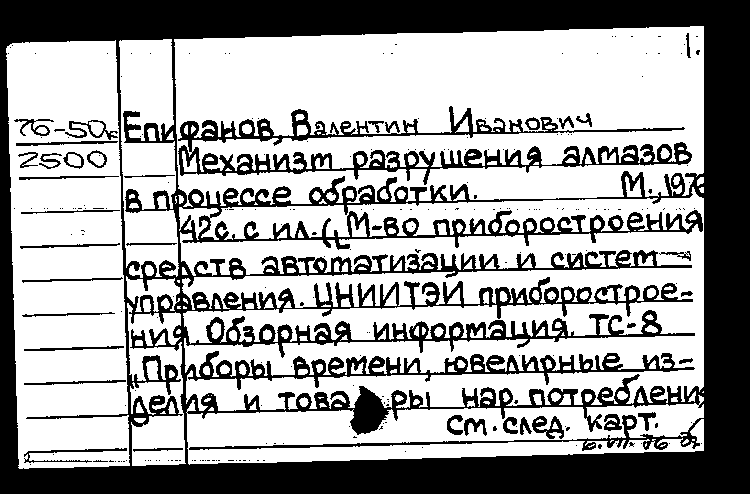 1.
76-50к Епифанов, Валентин Иванович
2500 Механизм разрушения алмазов
в процессе обработки. М., 1976
42с. с ил. ([М-во приборостроения
средств автоматизации и систем
управления. ЦНИИТЭИ приборострое-
ния. Обзорная информация. ТС-8
„Приборы времени, ювелирные из-
делия и товары нар. потребления
см. след. карт.